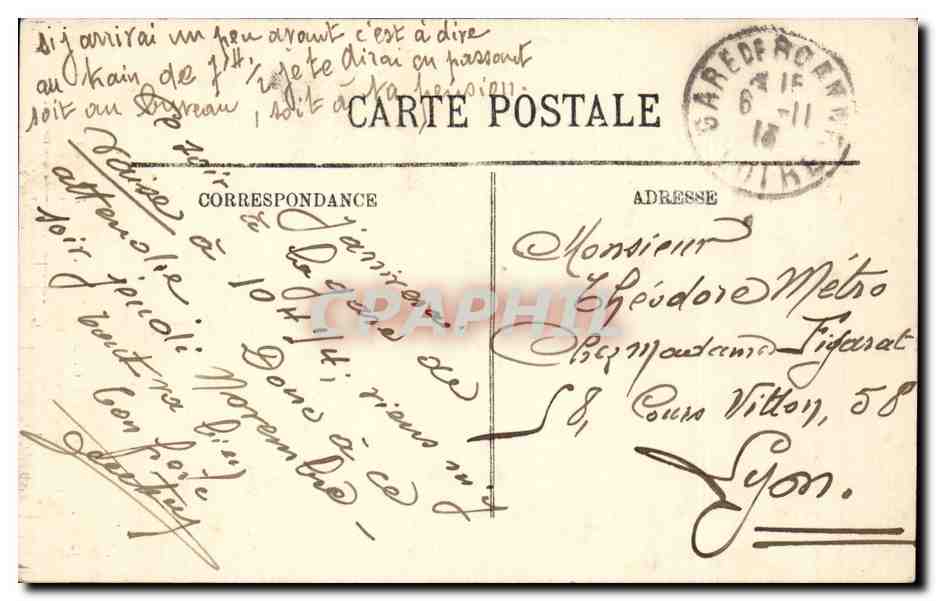 si j'arrivai un peu avant c'est à dire
au train de 7H 1/2 je te dirai en passant
soit au bureau, soit à ta pension.
CARTE POSTALE
GARE DE ROANNE
15
6 -11
13
LOIRE
CORRESPONDANCE
J'arriverai ce soir
à la gare de Vaise à
10H 1/4, viens m'y attendre
Donc à ce soir jeudi
Novembre
tout va bien
bon
ADRESSE
Monsieur
Théodore Métro
Chez Madame Figarat
58, Cours Vitton, 58
Lyon.
CPAPHIL